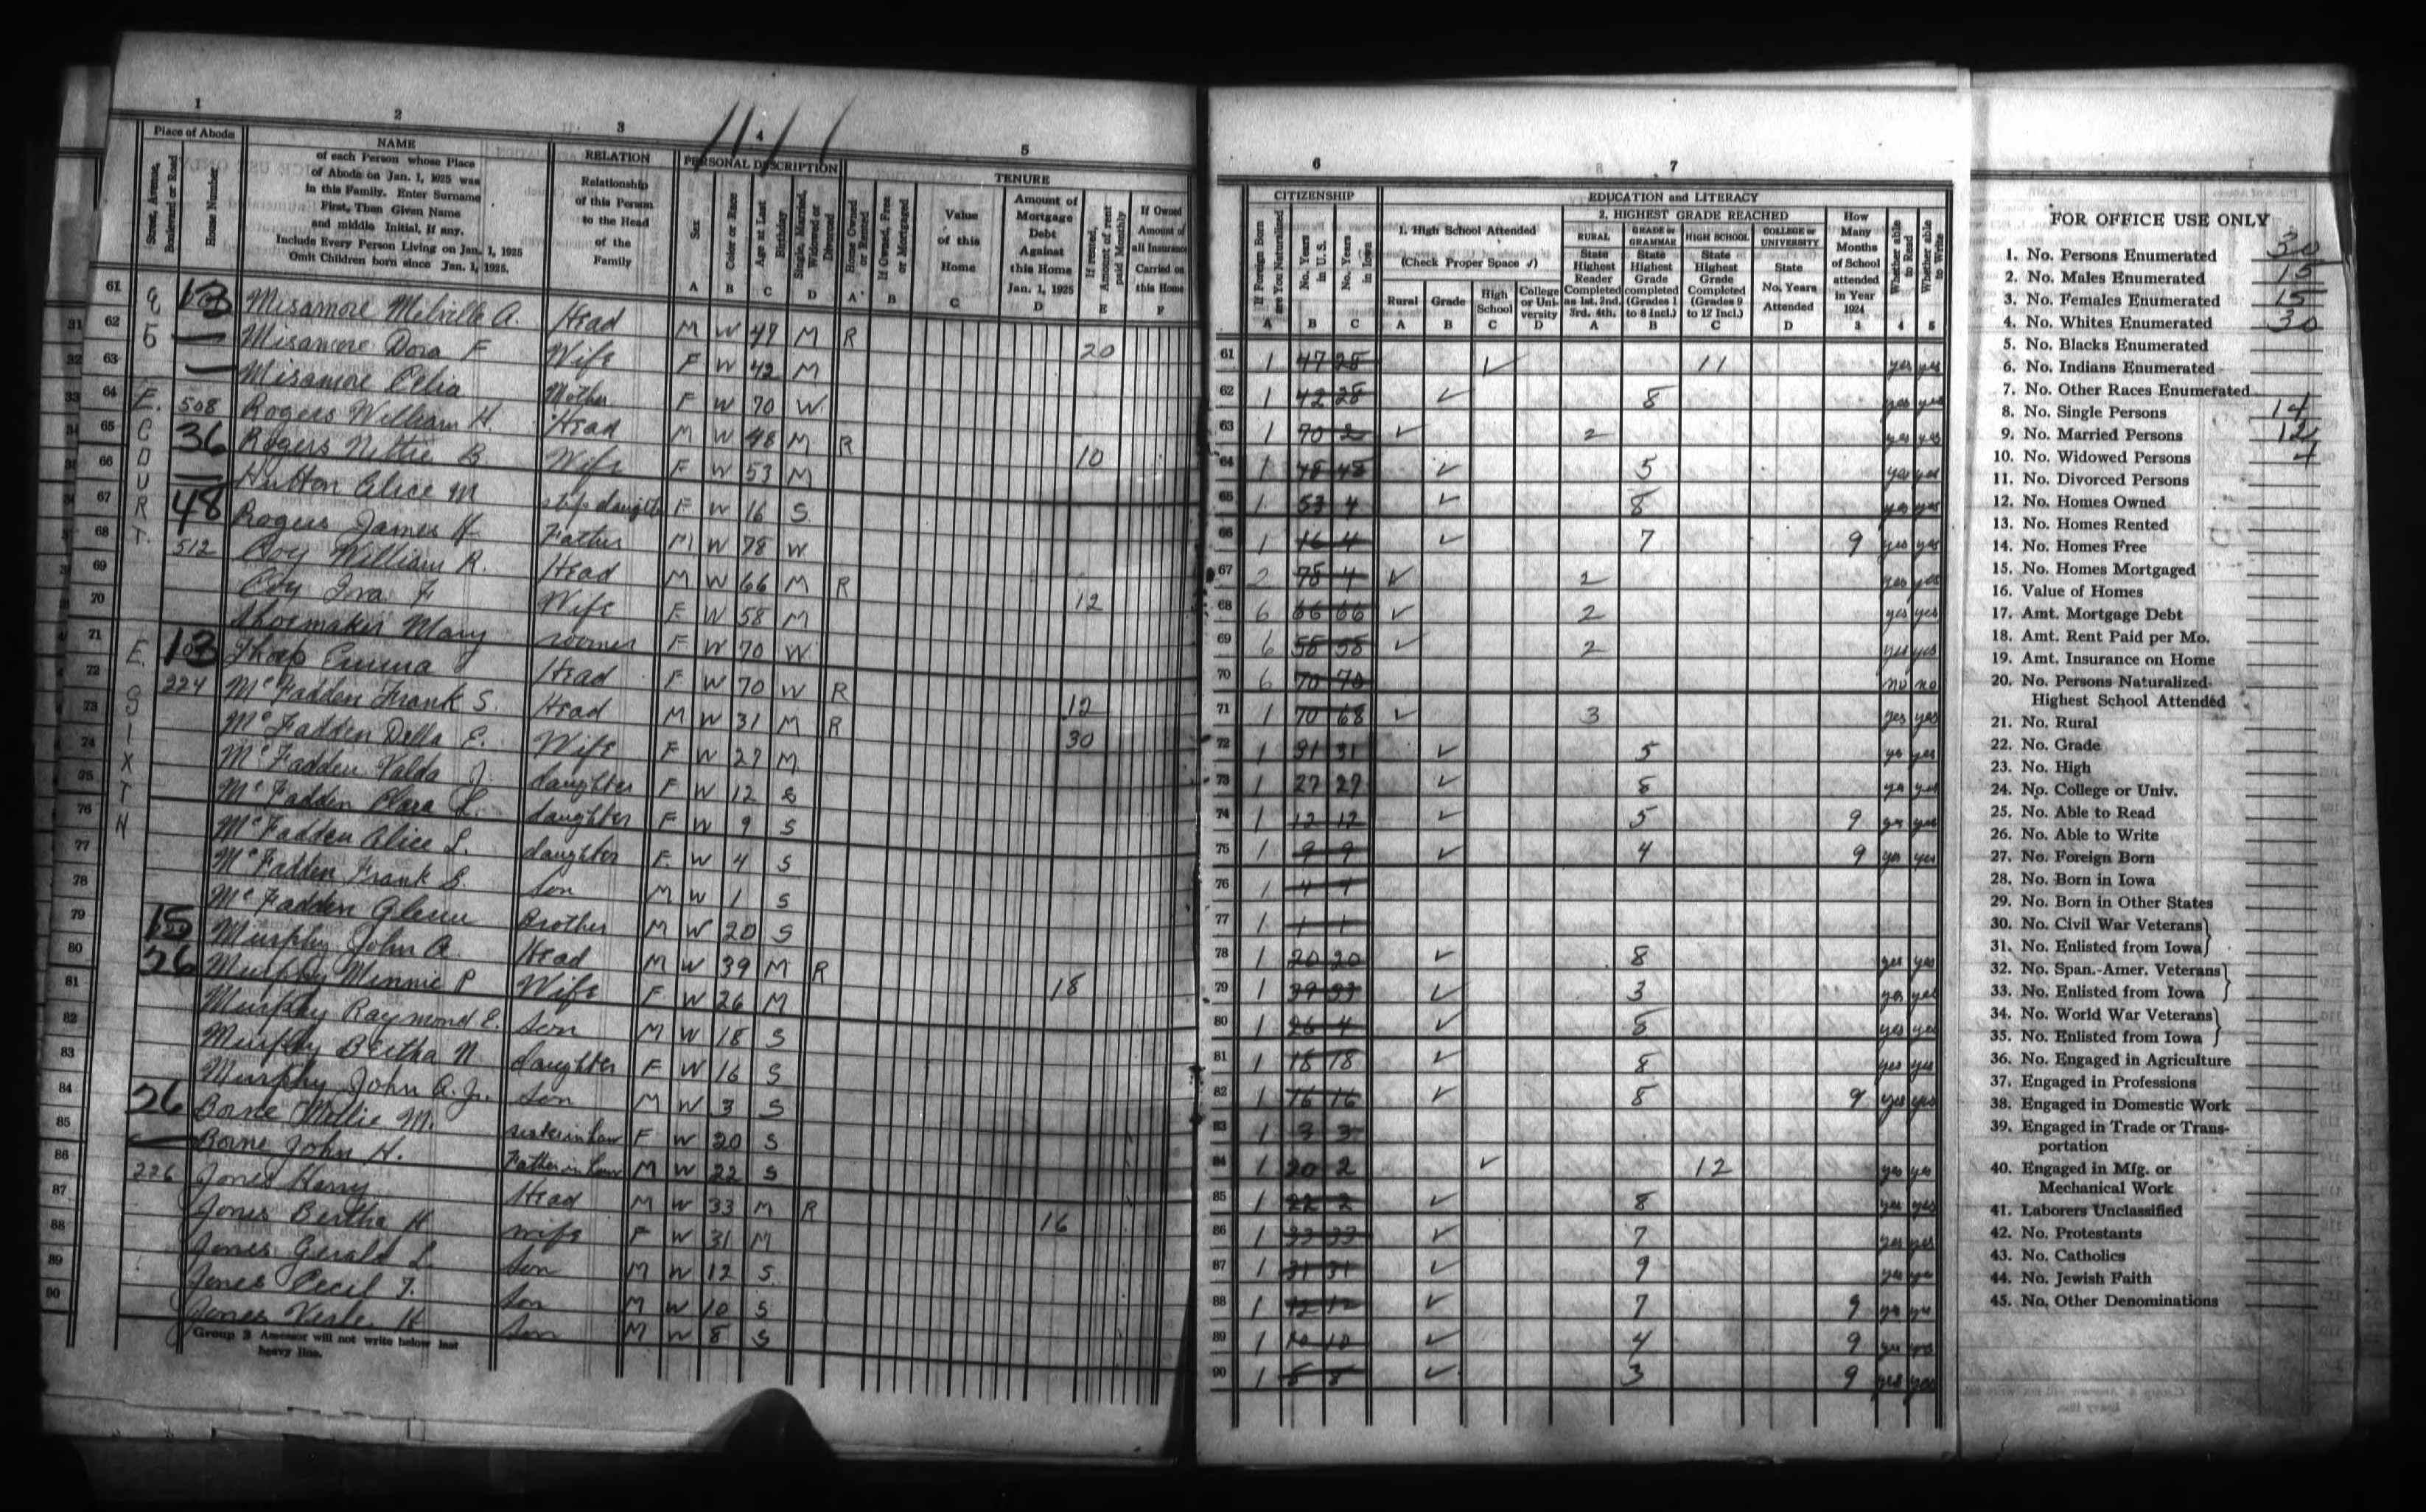 1 2 3 4 5
Place of Abode NAME RELATION PERSONAL DESCRIPTION TENURE
Street, Avenue, Boulevard or Road
House Number
of each Person whose Place
of Abode on Jan. 1, 1925 was
in this Family. Enter Surname
First, Then Given Name
and middle Initial, if any.
Include Every Person Living on Jan. 1, 1925
Omit Children born since Jan. 1, 1925.
Relationship
of this Person
to the Head
of the
Family
Sex
Color or Race
Age at Last Birthday
Single, Married, Widowed or Divorced
Home Owned or Rented
If Owned, Free or Mortgaged
Value of this Home
Amount of Mortgage Debt Against this Home Jan. 1, 1925
If rented, Amount of rent paid Monthly
If Owned Amount of all Insurance Carried on this Home
A B C D A B C D E F
61 Misamore Melville A. Head M W 47 M R 20
62 Misamore Dora F Wife F W 42 M
63 Misamore Celia Mother F W 70 W
64 508 Rogers William H. Head M W 48 M R 10
65 Rogers Nettie B Wife F W 53 M
66 Hutton Alice M step daughter F W 16 S
67 Rogers James H Father M W 78 W
68 512 Coy William R. Head M W 66 M R 12
69 Coy Iva F Wife F W 58 M
70 Shoemaker Mary roomer F W 70 W
71 Emma Head F W 70 W R 12
72 224 McFadden Frank S. Head M W 31 M R 30
73 McFadden Della E. Wife F W 27 M
74 McFadden Valda J. daughter F W 12 S
75 McFadden Clara L. daughter F W 9 S
76 McFadden Alice L. daughter F W 4 S
77 McFadden Frank S. Son M W 1 S
78 McFadden Glenn Brother M W 20 S
79 Murphy John A. Head M W 39 M R 18
80 Murphy Minnie P Wife F W 26 M
81 Murphy Raymond E. Son M W 18 S
82 Murphy Bertha N daughter F W 16 S
83 Murphy John A. Jr. Son M W 3 S
84 Borne Mollie M. sister in Law F W 20 S
85 Borne John H. Father in Law M W 22 S
86 226 Jones Harry Head M W 33 M R 16
87 Jones Bertha H wife F W 31 M
88 Jones Gerald L. Son M W 12 S
89 Jones Cecil T. Son M W 10 S
90 Jones H Son M W 8 S
E. C O U R T.
E. S I X T H
Group 3 Assessor will not write below last
heavy line.
6 7
CITIZENSHIP EDUCATION and LITERACY
If Foreign Born are You Naturalized
No. Years in U.S.
No. Years in Iowa
1. High School Attended
(Check Proper Space ✓)
Rural Grade High School College or University
2. HIGHEST GRADE REACHED
RURAL GRADE or GRAMMAR HIGH SCHOOL COLLEGE or UNIVERSITY
State Highest Reader Completed as 1st, 2nd, 3rd, 4th.
State Highest Grade completed (Grades 1 to 8 Incl.)
State Highest Grade Completed (Grades 9 to 12 Incl.)
State No. Years Attended
How Many Months of School attended in Year 1924
Whether able to Read
Whether able to Write
A B C A B C D A B C D 3 4 5
61 1 47 25 ✓ 11 yes yes
62 1 42 25 ✓ 8 yes yes
63 1 70 2 ✓ 2 yes yes
64 1 48 48 ✓ 5 yes yes
65 1 53 4 ✓ 8 yes yes
66 1 16 4 ✓ 7 9 yes yes
67 2 78 4 ✓ 2 yes yes
68 6 66 66 ✓ 2 yes yes
69 6 58 58 ✓ 2 yes yes
70 6 70 70 no no
71 1 70 68 ✓ 3 yes yes
72 1 31 31 ✓ 5 yes yes
73 1 27 27 ✓ 8 yes yes
74 1 12 12 ✓ 5 9 yes yes
75 1 9 9 ✓ 4 9 yes yes
76 1 4 4
77 1 1 1
78 1 20 20 ✓ 8 yes yes
79 1 39 33 ✓ 3 yes yes
80 1 26 4 ✓ 8 yes yes
81 1 18 18 ✓ 8 yes yes
82 1 16 16 ✓ 8 9 yes yes
83 1 3 3
84 1 20 2 ✓ 12 yes yes
85 1 22 2 ✓ 8 yes yes
86 1 33 33 ✓ 7 yes yes
87 1 31 31 ✓ 9 yes yes
88 1 12 12 ✓ 7 9 yes yes
89 1 10 10 ✓ 4 9 yes yes
90 1 8 8 ✓ 3 9 yes yes
FOR OFFICE USE ONLY
1. No. Persons Enumerated 30
2. No. Males Enumerated 15
3. No. Females Enumerated 15
4. No. Whites Enumerated 30
5. No. Blacks Enumerated
6. No. Indians Enumerated
7. No. Other Races Enumerated
8. No. Single Persons 14
9. No. Married Persons 12
10. No. Widowed Persons 4
11. No. Divorced Persons
12. No. Homes Owned
13. No. Homes Rented
14. No. Homes Free
15. No. Homes Mortgaged
16. Value of Homes
17. Amt. Mortgage Debt
18. Amt. Rent Paid per Mo.
19. Amt. Insurance on Home
20. No. Persons Naturalized
Highest School Attended
21. No. Rural
22. No. Grade
23. No. High
24. No. College or Univ.
25. No. Able to Read
26. No. Able to Write
27. No. Foreign Born
28. No. Born in Iowa
29. No. Born in Other States
30. No. Civil War Veterans
31. No. Enlisted from Iowa
32. No. Span.-Amer. Veterans
33. No. Enlisted from Iowa
34. No. World War Veterans
35. No. Enlisted from Iowa
36. No. Engaged in Agriculture
37. Engaged in Professions
38. Engaged in Domestic Work
39. Engaged in Trade or Trans-
portation
40. Engaged in Mfg. or
Mechanical Work
41. Laborers Unclassified
42. No. Protestants
43. No. Catholics
44. No. Jewish Faith
45. No. Other Denominations